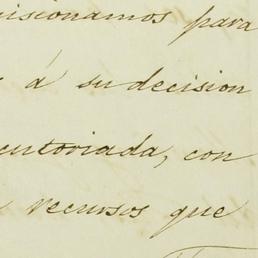 uisionamos para
á su decision
cutoriada, con
recursos que